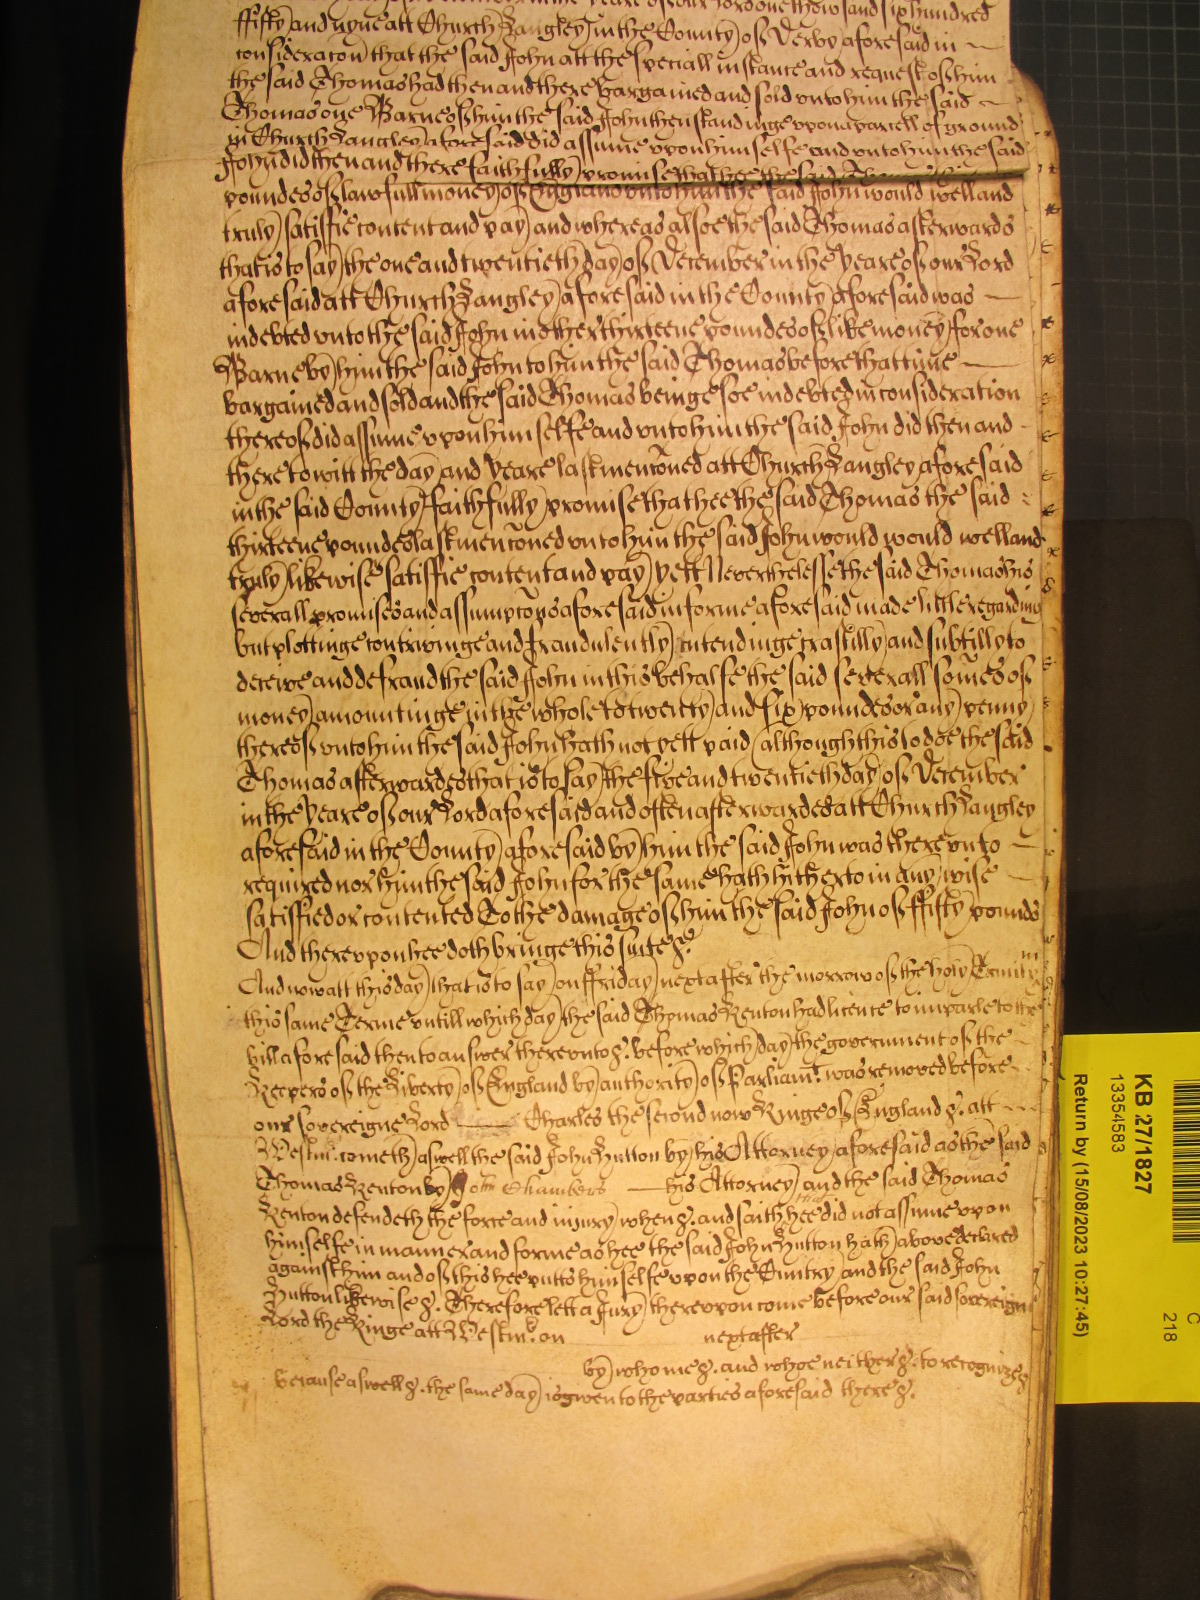 yeare of our Lord one thowsand six hundred
ffifty and nyne att Church Langley in the County of Derby aforesaid in
consideracon that the said John att the speciall instance and request of him
the said Thomas had then and there bargained and sold unto him the said
Thomas one Barne of him the said John then standinge upon a parcell of ground
in Church Langley aforesaid did assume upon himselfe and unto him the said
John did then and there faithfully promise that hee the said Thomas
poundes of lawfull money of England unto him the said John would well and
truly satisfie content and pay and whereas alsoe the said Thomas afterwards
that is to say the one and twentieth day of December in the yeare of our Lord
aforesaid att Church Langley aforesaid in the County aforesaid was
indebted unto the said John in other thirteene poundes of like money for one
Barne by him the said John to him the said Thomas before that time
bargained and sold and the said Thomas beinge soe indebted in consideration
thereof did assume upon himselfe and unto him the said John did then and
there to witt the day and yeare last mencõned att Church Langley aforesaid
in the said County faithfully promise that hee the said Thomas the said
thirteene poundes last mencõned unto him the said John would would well and
truly likewise satisfie content and pay yett Neverthelesse the said Thomas his
severall promises and assumptõns aforesaid in forme aforesaid made little regarding
but plottinge contrivinge and fraudulently intendinge craftilly and subtilly to
deceive and defraud the said John in this behalfe the said severall somẽs of
money amountinge in the whole to twenty and six poundes or any penny
thereof unto him the said John hath not yett paid although this to doe the said
Thomas afterwardes that is to say the five and twentieth day of December
in the yeare of our Lord aforesaid and often afterwardes att Church Langley
aforesaid in the County aforesaid by him the said John was thereunto
required nor him the said John for the same hath hitherto in any wise
satisfied or contented To the damage of him the said John of ffifty pounds
And thereupon hee doth bringe this suite &.
And now att this day that is to say on ffriday next after the morrow of the holy Trinity
this same Terme untill which day the said Thomas Renton had licence to imparle to the
bill aforesaid then to answer thereunto &. before which day the government of the
Keepers of the Liberty of England by authority of Parliamt. was removed before
our sovereigne Lord Charles the second now Kinge of England &. att
Westm̃. cometh aswell the said John Hutton by his Attorney aforesaid as the said
Thomas Renton by John Chambers his Attorney and the said Thomas
that
Renton defendeth the force and injury when &. and saith hee did not assume upon
himselfe in manner and forme as hee the said John Hutton hath above declared
against him and of this hee putts himselfe upon the Cuntry and the said John
Hutton likewise &. Therefore lett a Jury thereupon come before our said sovereigne
Lord the Kinge att Westm̃. on next after
by whome &. and whoe neither &. to recognize &
because aswell &. the same day is given to the parties aforesaid there &.
KB 27/1827
13354583
Return by (15/08/2023 10:27:45)
C
218